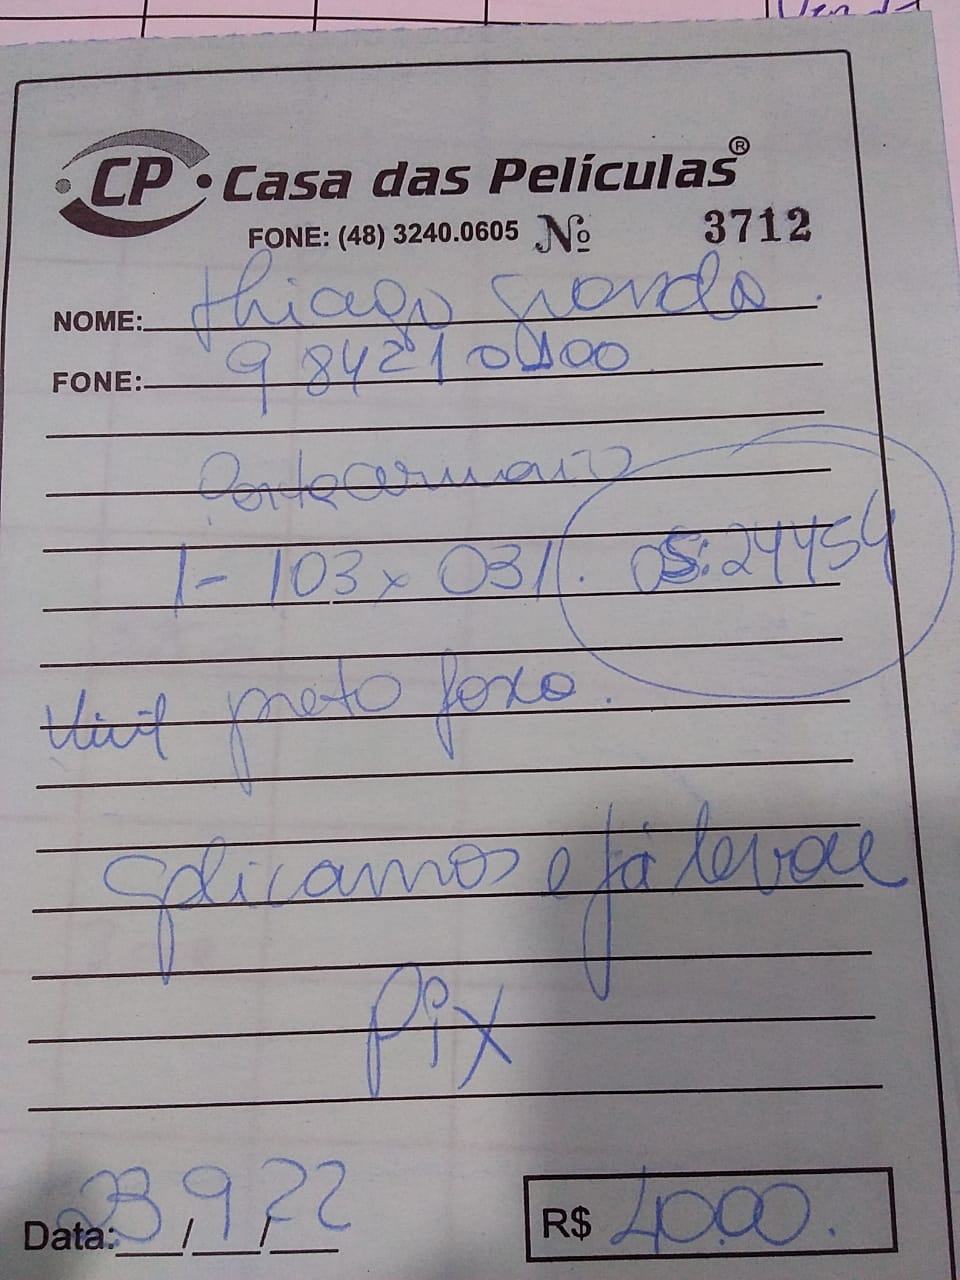 CP Casa das Películas®
FONE: (48) 3240.0605 Nº 3712
NOME: thiago
FONE: 9 8421 0100
1- 103 x 031. OS: 24454
Vinil preto foxo.
aplicamos e já levou
Pix
Data: 23/9/22 R$ 40.00.